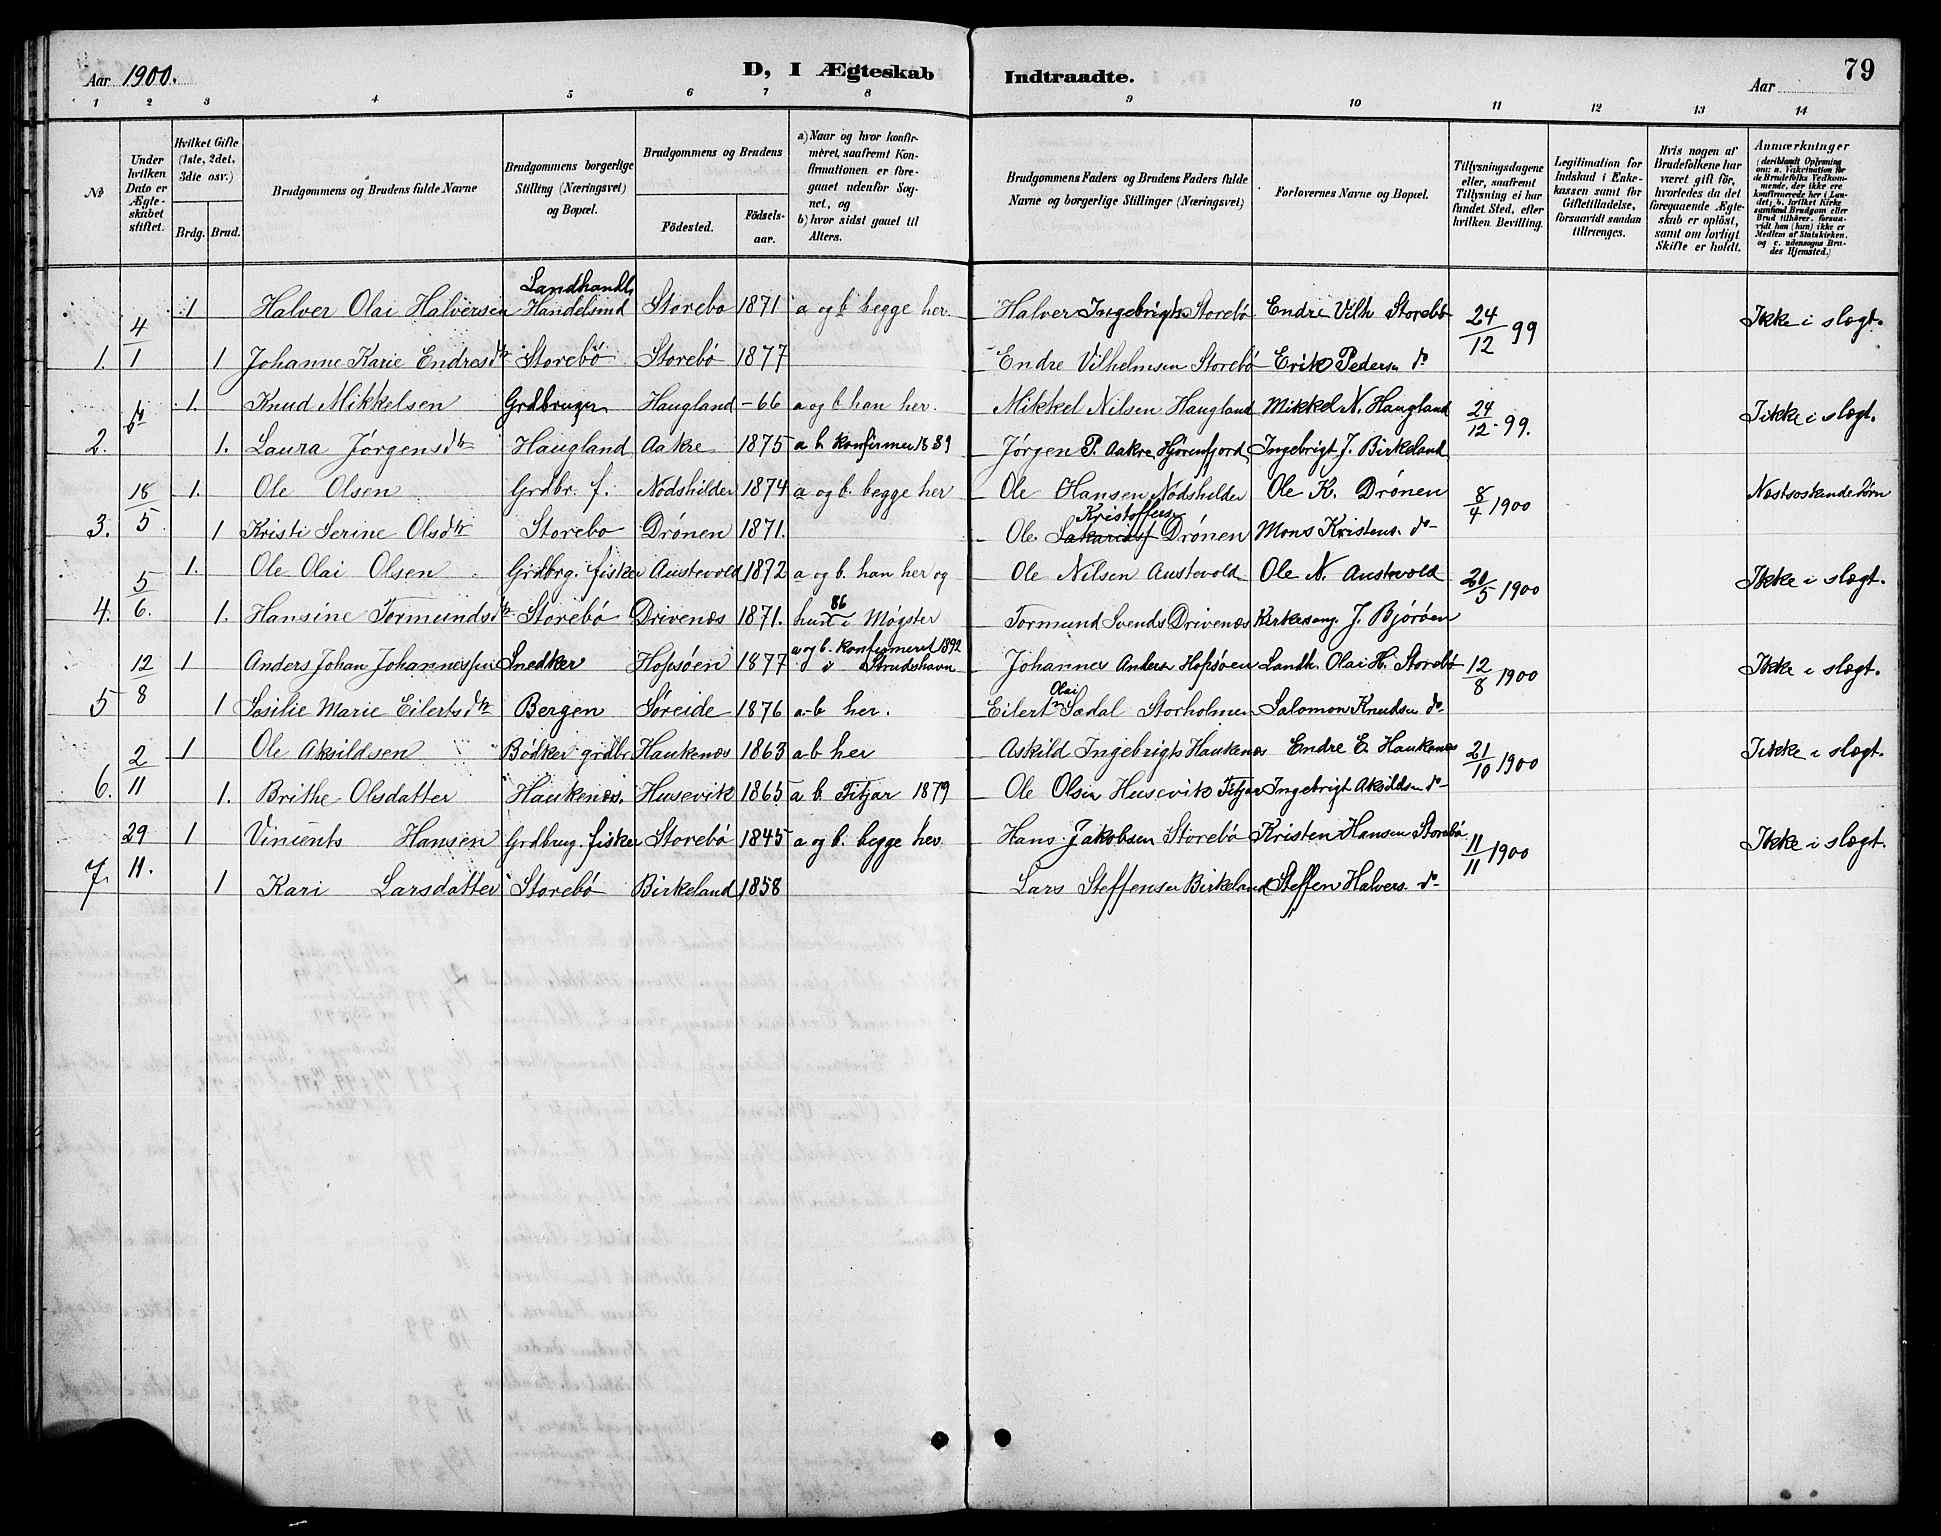 Aar 1900.
D, I Ægteskab
Indtraadte.
Aar
79
1 2 3 4 5 6 7 8 9 10 11 12 13 14
No
Under hvilken Dato er Ægteskabet stiftet.
Hvilket Gifte (1ste, 2det, 3die osv.)
Brdg. Brud.
Brudgommens og Brudens fulde Navne
Brudgommens borgerlige Stilling (Næringsvei) og Bopæl.
Brudgommens og Brudens
Fødested.
Fødselsaar.
a) Naar og hvor konfirmeret, saafremt Konfirmationen er foregaaet udenfor Sognet, og
b) hvor sidst gaaet til Alters.
Brudgommens Faders og Brudens Faders fulde Navne og borgerlige Stillinger (Næringsvei)
Forlovernes Navne og Bopæl.
Tillysningsdagene eller, saafremt Tillysning ei har fundet Sted, efter hvilken Bevilling.
Legitimation for Indskud i Enkekassen samt for Giftetilladelse, forsaavidt saadan tiltrænges.
Hvis nogen af Brudefolkene har været gift før, hvorledes da det foregaaende Ægteskab er opløst, samt om lovligt Skifte er holdt.
Anmærkninger
(deriblandt Oplysning om: a. Vakcination for de Brudefolks Vedkommende, der ikke ere konfirmerede her i Landet; b. hvilket Kirkesamfund Brudgom eller Brud tilhører, forsaavidt han (hun) ikke er Medlem af Statskirken, og c. udensogns Brudes Hjemsted.)
Landhandl.
1 Halver Olai Halversen Handelsmd Storebø 1871 a og b begge her. Halver Ingebrigts. Storebø Endre Vilh Storebø 24/12 99 Ikke i slægt.
1. 4/1 1 Johanne Karie Endresdtr Storebö Storebö 1877 Endre Vilhelmsen Storebö Erik Peders do
1. Knud Mikkelsen Grdbruger Haugland -66 a og b han her. Mikkel Nilsen Haugland Mikkel N. Haugland 24/12-99. Ikke i slægt.
2. 1. Laura Jørgensdtr Haugland Aakre 1875 a b konfirmer 1889 Jørgen P. Aakre Ingebrigt J. Birkeland
18/5 1. Ole Olsen Grdbr. f. Nodshilder 1874 a og b. begge her Ole Hansen Nodshilder Ole K. Drönen 8/4 1900 Næstsøskendebørn
Kristoffers
3. 1 Kristi Serine Olsdtr Storebo Drönen 1871. Ole Sakariass Drönen Mons Kristens. do
1. Ole Olai Olsen Grdbrg. fisker Austevold 1872 a og b. han her og Ole Nilsen Austevold Ole N. Austevold 20/5 1900 Ikke i slægt.
86
4. 5/6. 1. Hansine Tormundsdtr Storebö Drivenæs 1871. hun i Møgster Tormund Svends Drivenæs Kirkesang. J. Björöen
a og b. konfirmered 1892
12/8 1 Anders Johan Johannessen Snedker Hopsöen 1877 i Strudshavn Johannes Anders Hopsöen Landh. Olai H. Storebö 12/8 1900 Ikke i slægt.
Olai
5 1 Sesilie Marie Eilertsdtr Bergen Søreide 1876 a-b her. Eilert Sædal Storholmen Salomon Knudsen do
1 Ole Aksildsen Bödker grdbr Haukenæs 1863 a-b her Askild Ingebrigts Haukenæs Endre E. Haukenæs 21/10 1900 Ikke i slægt.
6. 2/11 1. Brithe Olsdatter Haukenæs. Husevik 1865 a b. Fitjar 1879 Ole Olsen Husevik Fitjar Ingebrigt Aksildsen do
29/11. 1 Vincents Hansen Grdbrug. fisker Storebö 1845 a og b. begge her Hans Jakobsen Storebö Kristen Hansen Storebö 11/11 1900 Ikke i slægt.
7. 1 Kari Larsdatter Storebö Birkeland 1858 Lars Steffensen Birkeland Steffen Halvers. do